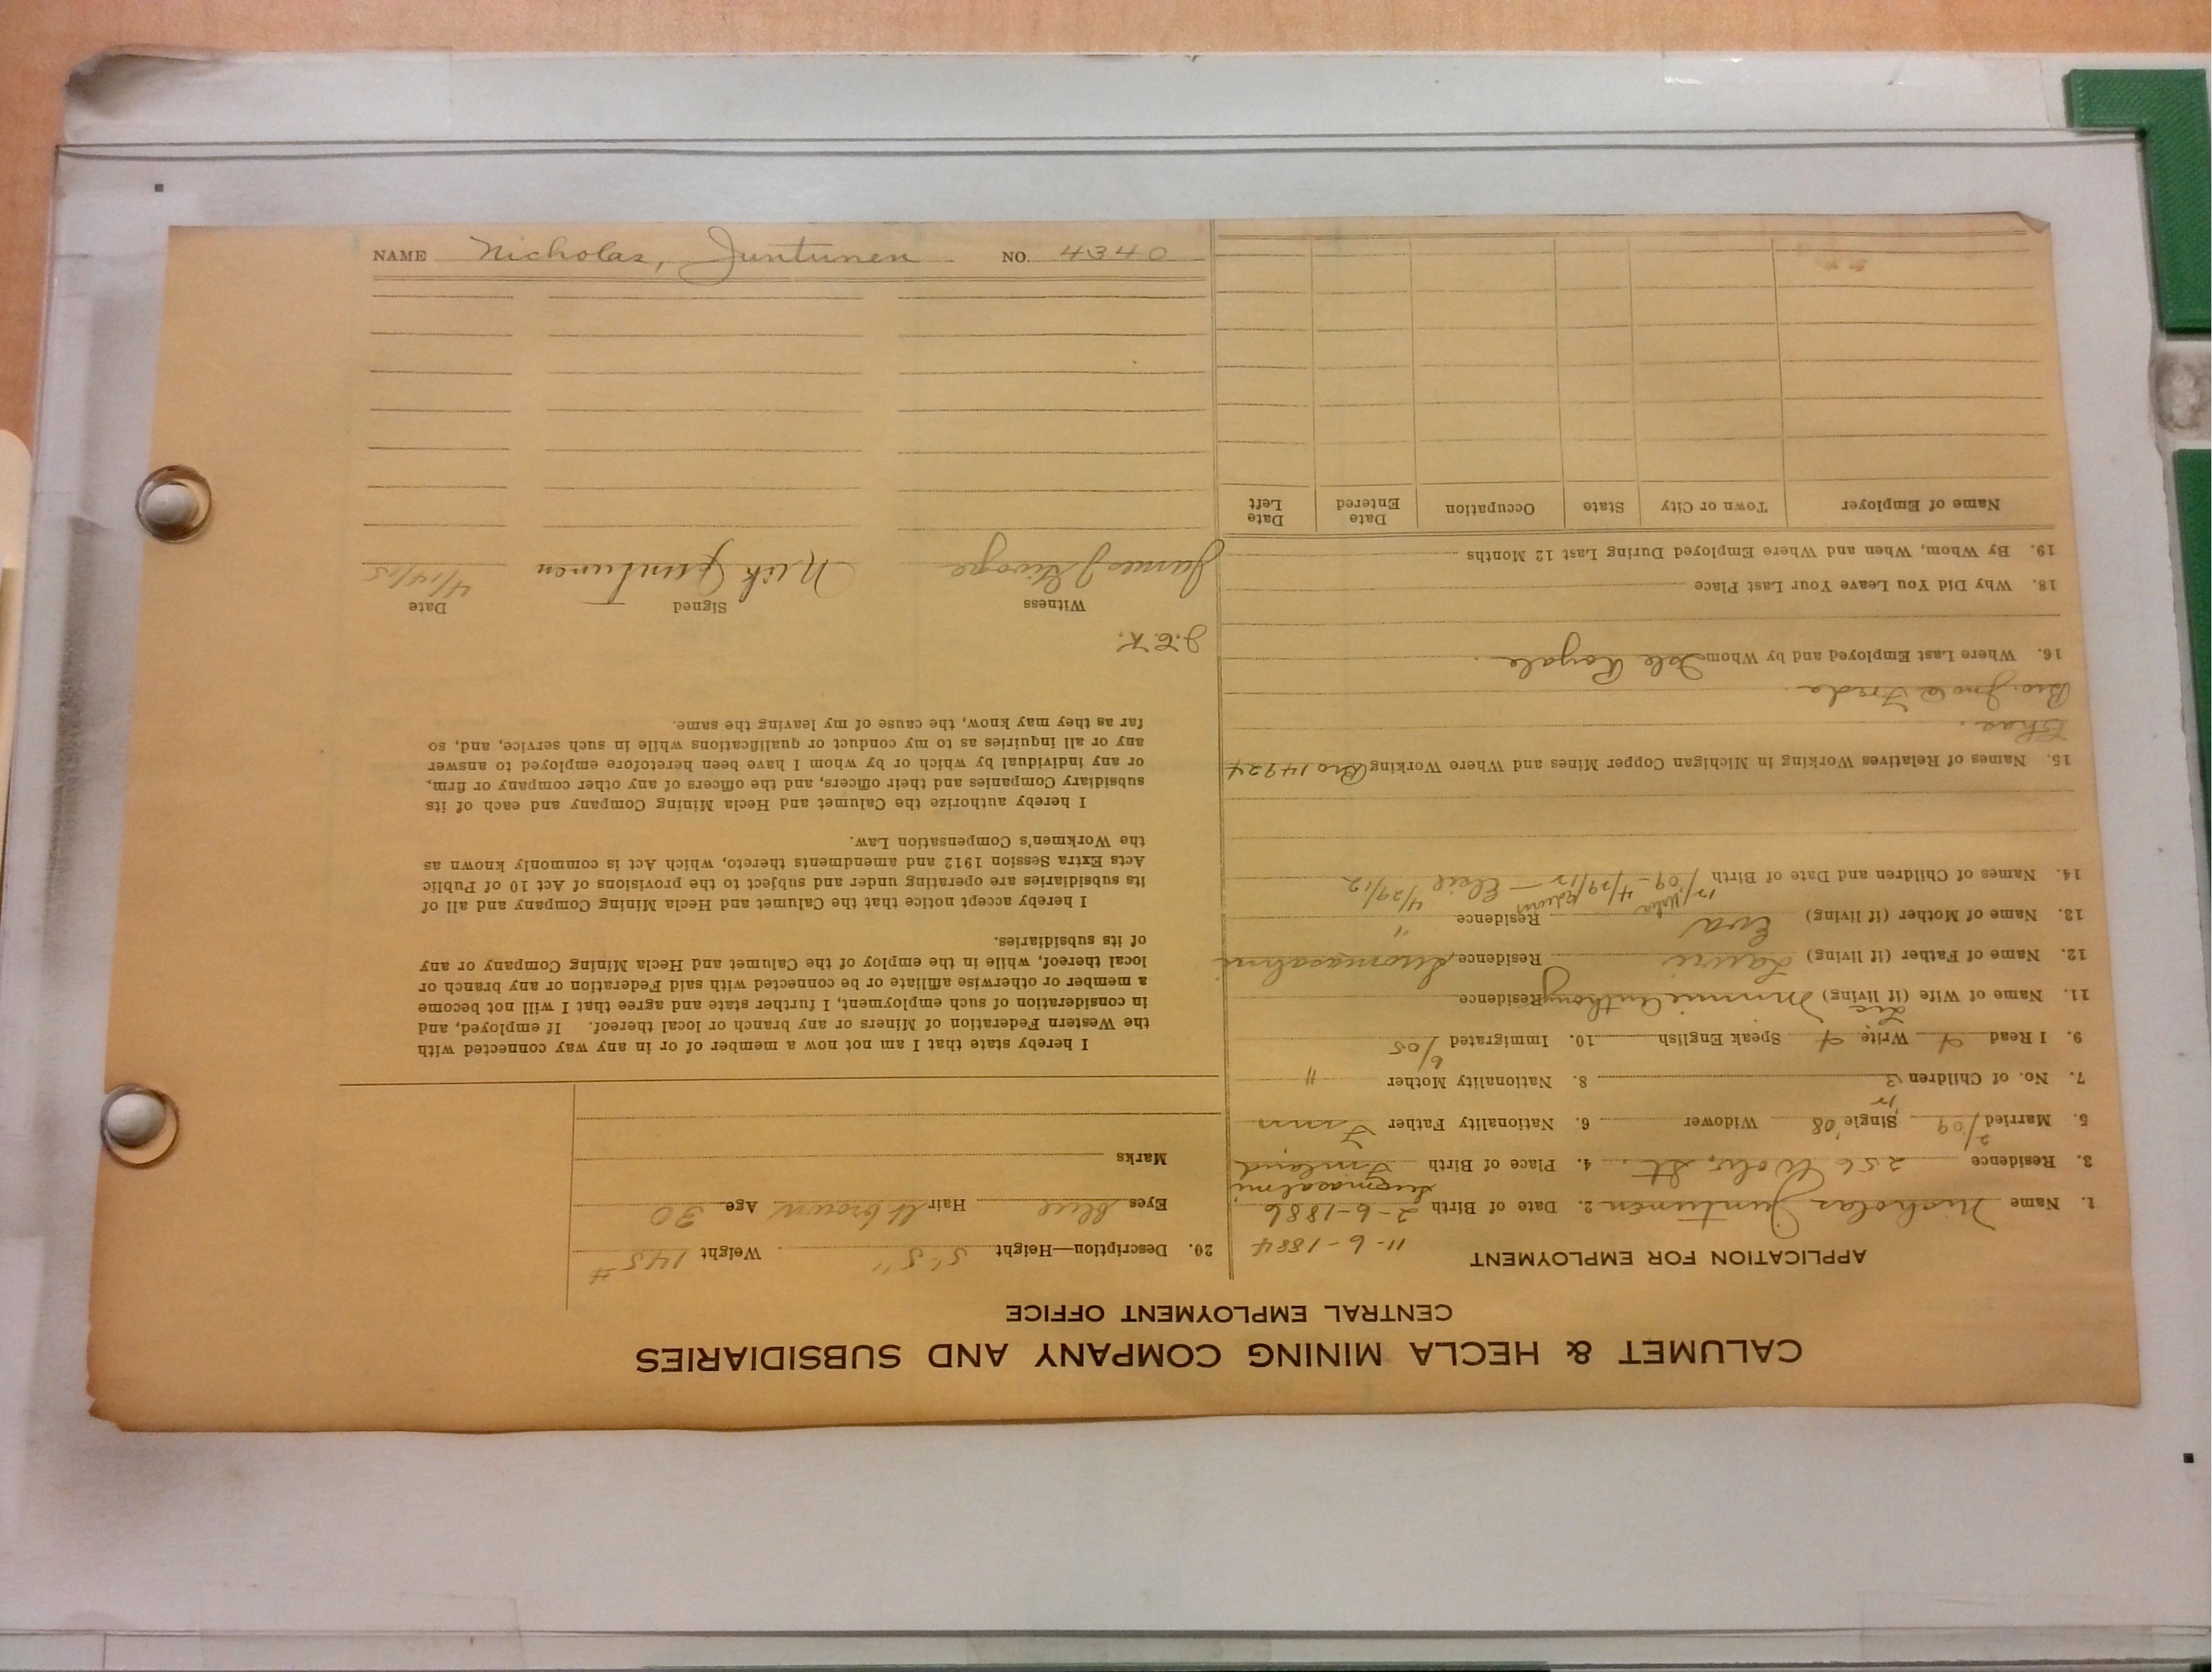 CALUMET & HECLA MINING COMPANY AND SUBSIDIARIES
CENTRAL EMPLOYMENT OFFICE
APPLICATION FOR EMPLOYMENT
11-6-1884
1. Name Nicholas Juntunen 2. Date of Birth 2-6-1886
3. Residence 256 St. 4. Place of Birth Finland
5. Married 2/09 Single '08 Widower 6. Nationality Father Finn
7. No. of Children 3 8. Nationality Mother "
9. I Read Write Speak English 10. Immigrated 6/05
11. Name of Wife (if living) Minnie Anthony Residence
12. Name of Father (if living) Residence
13. Name of Mother (if living) Eva Residence "
14. Names of Children and Date of Birth
15. Names of Relatives Working in Michigan Copper Mines and Where Working Bro 14924
Chas.
Bro. Jno @ Freda
16. Where Last Employed and by Whom Isle Royale
18. Why Did You Leave Your Last Place
19. By Whom, When and Where Employed During Last 12 Months
Name of Employer Town or City State Occupation Date Entered Date Left
20. Description—Height 5' 5" Weight 145 #
Eyes blue Hair lt brown Age 30
Marks
I hereby state that I am not now a member of or in any way connected with
the Western Federation of Miners or any branch or local thereof. If employed, and
in consideration of such employment, I further state and agree that I will not become
a member or otherwise affiliate or be connected with said Federation or any branch or
local thereof, while in the employ of the Calumet and Hecla Mining Company or any
of its subsidiaries.
I hereby accept notice that the Calumet and Hecla Mining Company and all of
its subsidiaries are operating under and subject to the provisions of Act 10 of Public
Acts Extra Session 1912 and amendments thereto, which Act is commonly known as
the Workmen's Compensation Law.
I hereby authorize the Calumet and Hecla Mining Company and each of its
subsidiary Companies and their officers, and the officers of any other company or firm,
or any individual by which or by whom I have been heretofore employed to answer
any or all inquiries as to my conduct or qualifications while in such service, and, so
far as they may know, the cause of my leaving the same.
Witness Signed Date
James J Nick Juntunen 4/14/15
NAME Nicholas, Juntunen NO. 4340